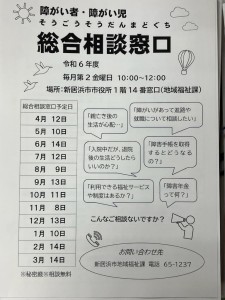 障がい者・障がい児
そうごうそうだんまどぐち
総合相談窓口
令和６年度
毎月第２金曜日 10:00～12:00
場所:新居浜市市役所１階14番窓口(地域福祉課)
総合相談窓口予定日
4月 12日
5月 10日
6月 14日
7月 12日
8月 9日
9月 13日
10月 11日
11月 8日
12月 13日
1月 10日
2月 14日
3月 14日
※秘密厳守※相談無料
「親亡き後の
生活が心配…」
「障がいがあって進路や
就職について相談したい」
「入院中だが、退院
後の生活どうしたら
いいのか?」
「障害手帳を取得
するとどうなる
の?」
「利用できる福祉サービス
や制度はあるか?」
「障害年金
って何?」
こんなご相談ないですか?
お問い合わせ先
新居浜市地域福祉課 電話 65-1237